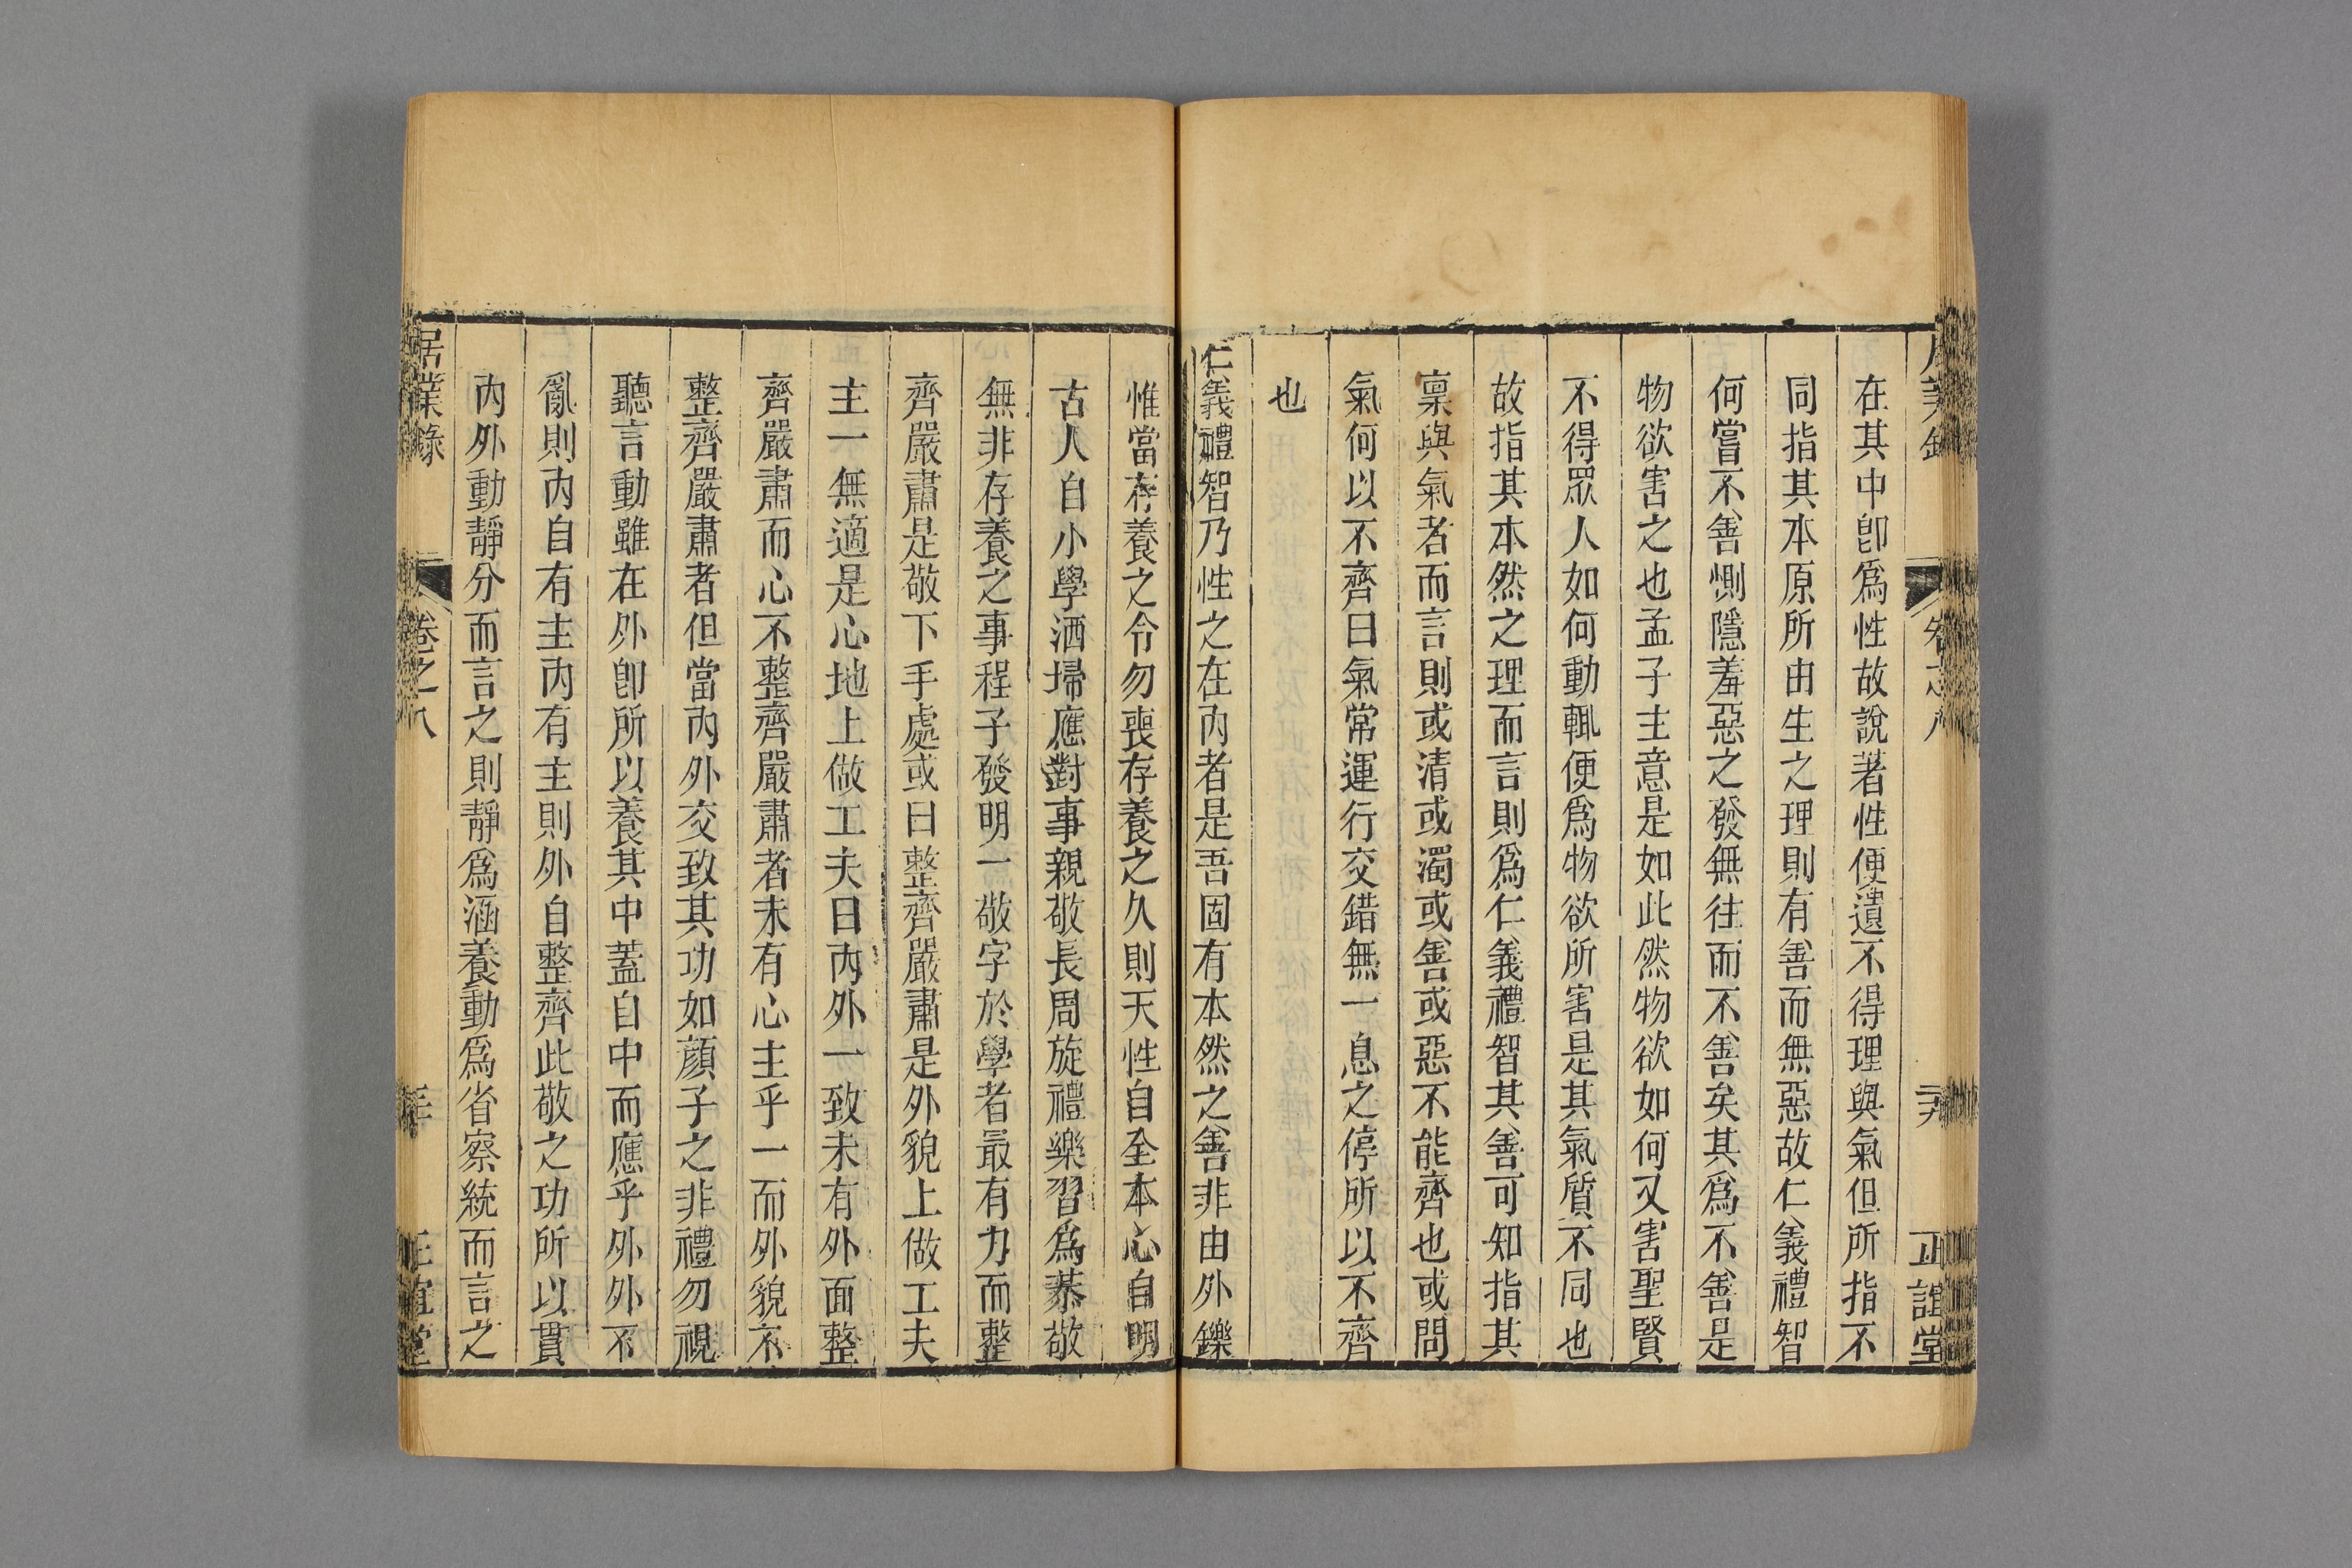 居業錄 卷之八 二十九 正誼堂
在其中卽爲性故說著性便遺不得理與氣但所指不
同指其本原所由生之理則有善而無惡故仁義禮智
何嘗不善惻隱羞惡之發無往而不善矣其爲不善是
物欲害之也孟子主意是如此然物欲如何又害聖賢
不得眾人如何動輒便爲物欲所害是其氣質不同也
故指其本然之理而言則爲仁義禮智其善可知指其
稟與氣者而言則或清或濁或善或惡不能齊也或問
氣何以不齊曰氣常運行交錯無一息之停所以不齊
也
仁義禮智乃性之在內者是吾固有本然之善非由外鑠
惟當存養之令勿喪存養之久則天性自全本心自明
古人自小學洒掃應對事親敬長周旋禮樂習爲恭敬
無非存養之事程子發明一敬字於學者最有力而整
齊嚴肅是敬下手處或曰整齊嚴肅是外貌上做工夫
主一無適是心地上做工夫曰內外一致未有外面整
齊嚴肅而心不整齊嚴肅者未有心主乎一而外貌不
整齊嚴肅者但當內外交致其功如顏子之非禮勿視
聽言動雖在外卽所以養其中蓋自中而應乎外外不
亂則內自有主內有主則外自整齊此敬之功所以貫
內外動靜分而言之則靜爲涵養動爲省察統而言之
居業錄 卷之八 三十 正誼堂